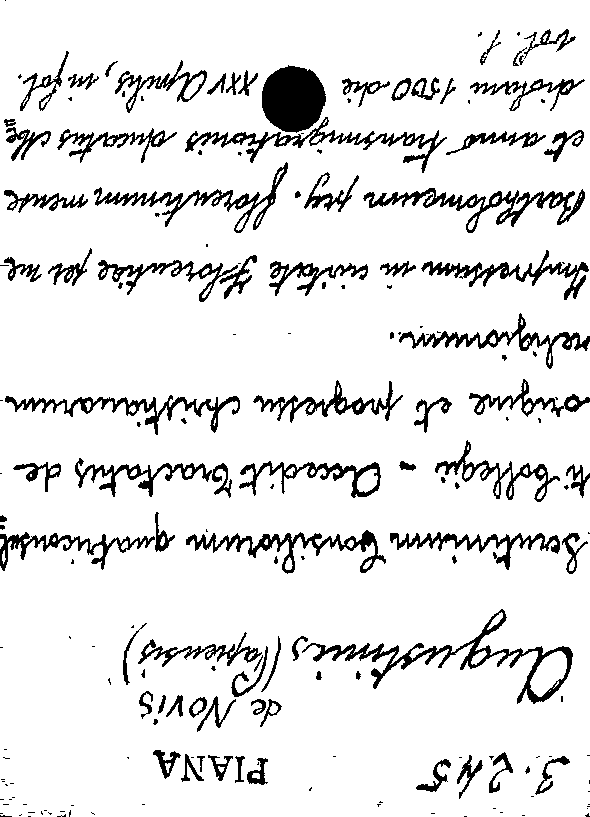 3.245 PIANA
de Novis
Augustinus (Papiensis)
Scrutinium Consiliorum quatriconsul
ti Collegii - Accedit Tractatus de
origine et progressu christianarum
religionum.
Impressum in civitate Florentiæ per me
Bartholomeum pry. florentinum mense
et anno transmigrationis ducatus Me
diolani 1500 die XXV Aprilis, in fol.
vol. 1.